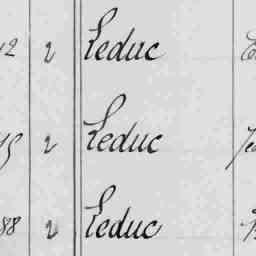 12 2 Leduc
2 Leduc
88 2 Leduc